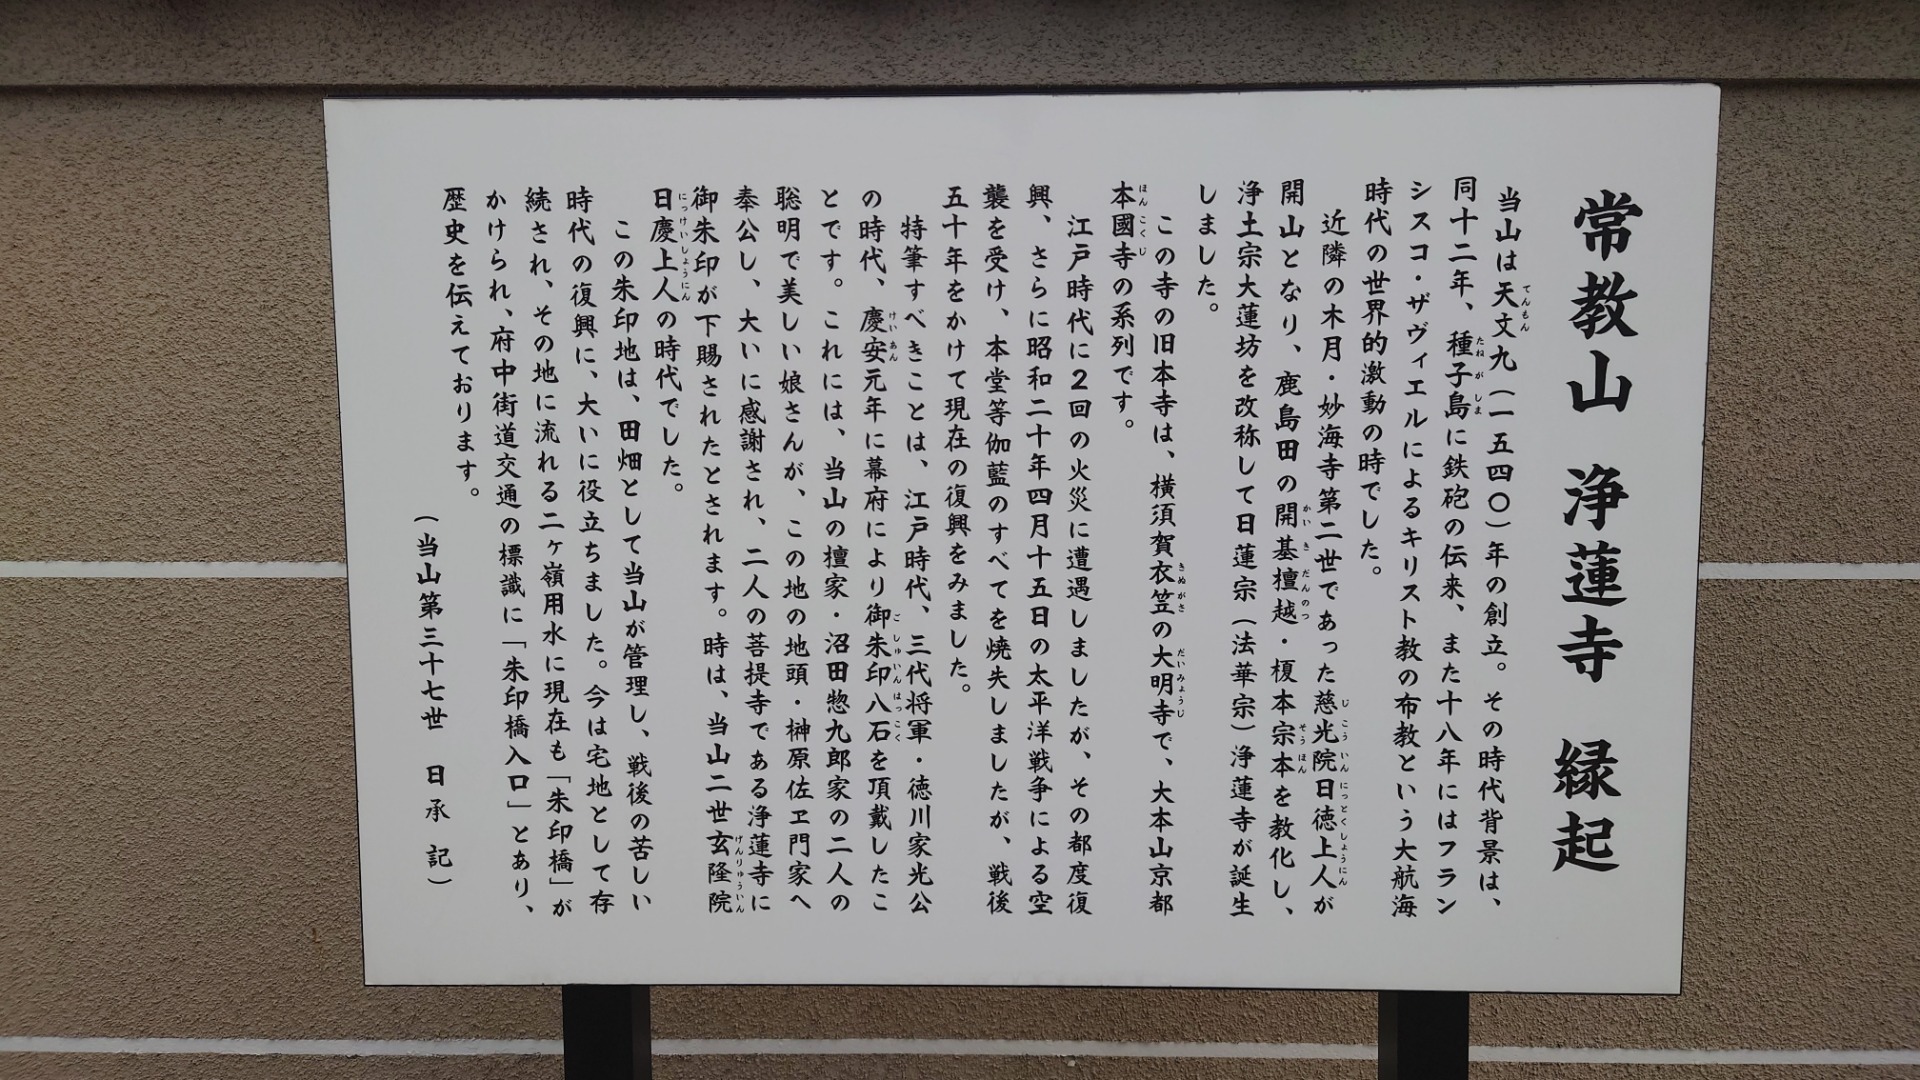 常教山 浄蓮寺 縁起
当山は天文九（一五四〇）年の創立。その時代背景は、
同十二年、種子島に鉄砲の伝来、また十八年にはフラン
シスコ・ザヴィエルによるキリスト教の布教という大航海
時代の世界的激動の時でした。
近隣の木月・妙海寺第二世であった慈光院日徳上人が
開山となり、鹿島田の開基檀越・榎本宗本を教化し、
浄土宗大蓮坊を改称して日蓮宗（法華宗）浄蓮寺が誕生
しました。
この寺の旧本寺は、横須賀衣笠の大明寺で、大本山京都
本國寺の系列です。
江戸時代に2回の火災に遭遇しましたが、その都度復
興、さらに昭和二十年四月十五日の太平洋戦争による空
襲を受け、本堂等伽藍のすべてを焼失しましたが、戦後
五十年をかけて現在の復興をみました。
特筆すべきことは、江戸時代、三代将軍・徳川家光公
の時代、慶安元年に幕府により御朱印八石を頂戴したこ
とです。これには、当山の檀家・沼田惣九郎家の二人の
聡明で美しい娘さんが、この地の地頭・榊原佐ヱ門家へ
奉公し、大いに感謝され、二人の菩提寺である浄蓮寺に
御朱印が下賜されたとされます。時は、当山二世玄隆院
日慶上人の時代でした。
この朱印地は、田畑として当山が管理し、戦後の苦しい
時代の復興に、大いに役立ちました。今は宅地として存
続され、その地に流れる二ヶ嶺用水に現在も「朱印橋」が
かけられ、府中街道交通の標識に「朱印橋入口」とあり、
歴史を伝えております。
（当山第三十七世 日承 記）